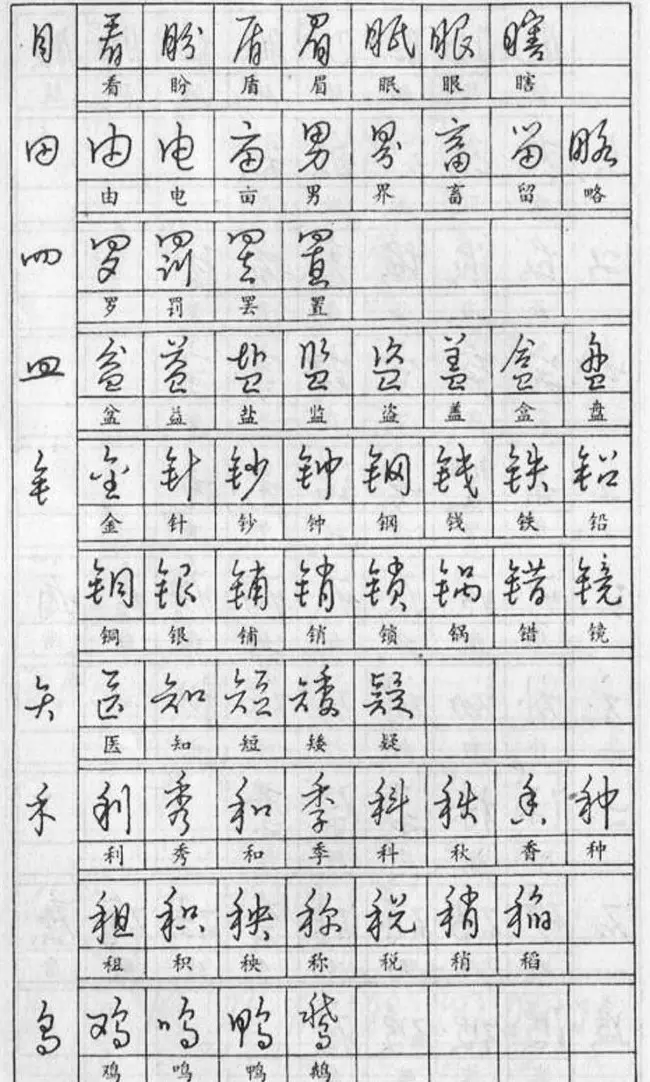 目 看 盼 盾 眉 眠 眼 瞎
看 盼 盾 眉 眠 眼 瞎
田 由 电 亩 男 界 畜 留 略
由 电 亩 男 界 畜 留 略
四 罗 罚 罢 置
罗 罚 罢 置
皿 盆 益 盐 监 盗 盖 盒 盘
盆 益 盐 监 盗 盖 盒 盘
钅 金 针 钞 钟 钢 钱 铁 铅
金 针 钞 钟 钢 钱 铁 铅
铜 银 铺 销 锁 锅 错 镜
铜 银 铺 销 锁 锅 错 镜
矢 医 知 短 矮 疑
医 知 短 矮 疑
禾 利 秀 和 季 科 秋 香 种
利 秀 和 季 科 秋 香 种
租 积 秧 称 税 稍 稻
租 积 秧 称 税 稍 稻
鸟 鸡 鸣 鸭 鹅
鸡 鸣 鸭 鹅